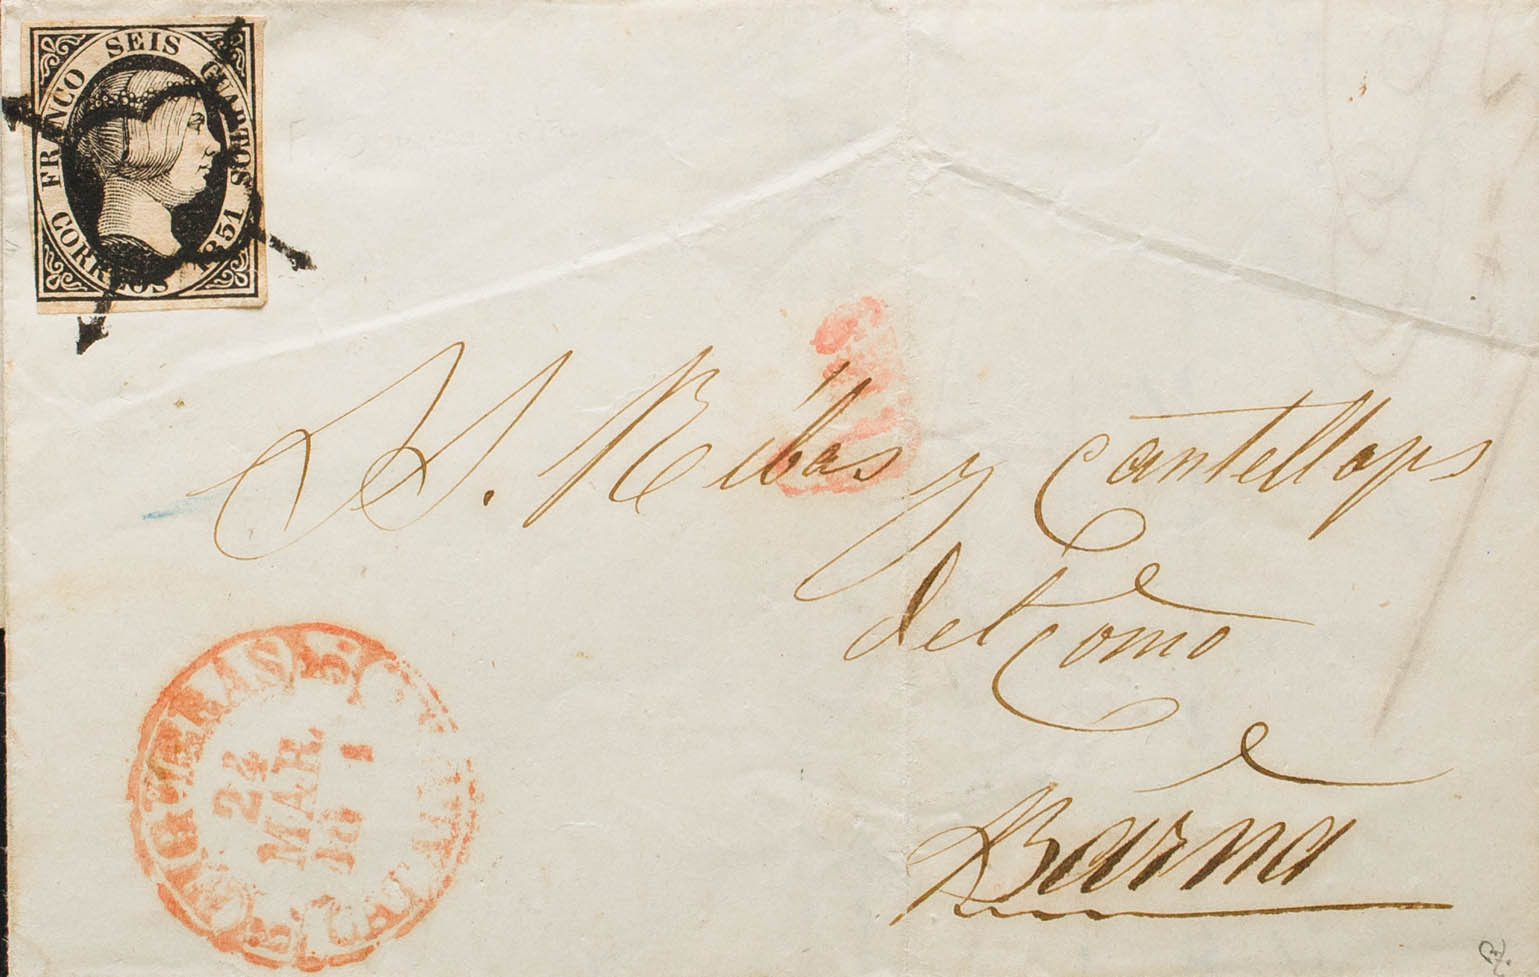 FRANCO SEIS CUARTOS
CORREOS 1851
S. S. Ribas y Cantellops
del Como
Barna
FIGUERAS
24
MAR.
18 1
CATALUÑA